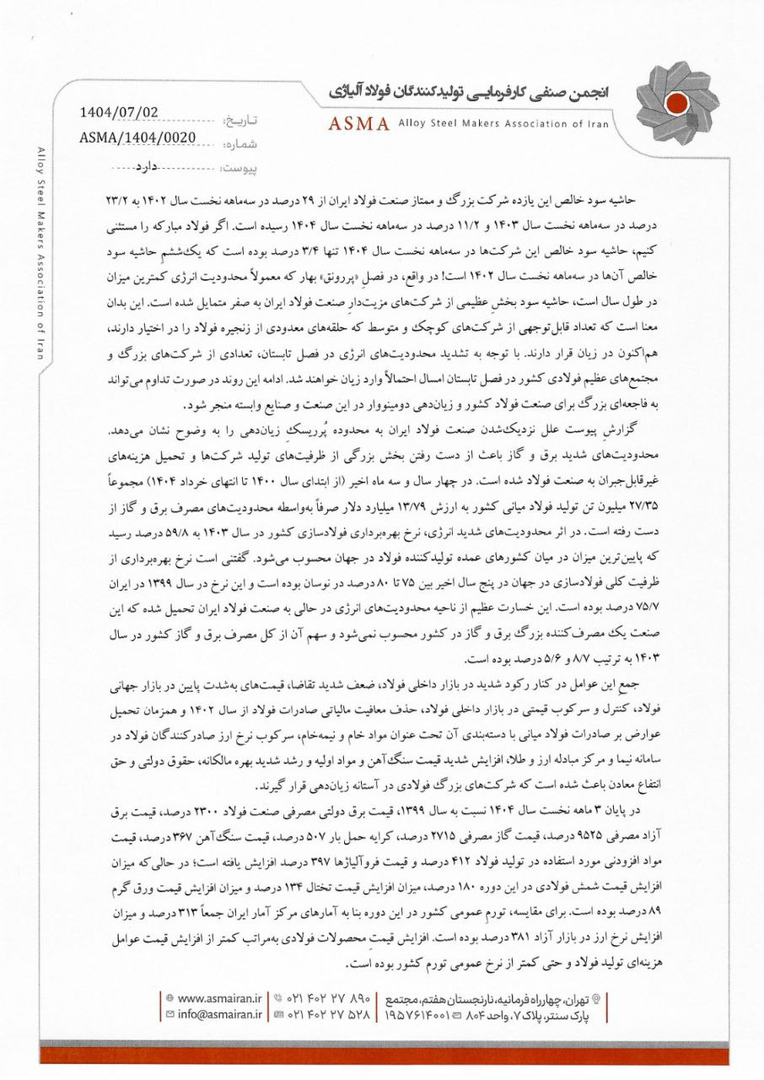 انجمن صنفی کارفرمایی تولیدکنندگان فولاد آلیاژی
ASMA Alloy Steel Makers Association of Iran
تاریخ: 1404/07/02
شماره: ASMA/1404/0020
پیوست: دارد
Alloy Steel Makers Association of Iran
حاشیه سود خالص این یازده شرکت بزرگ و ممتاز صنعت فولاد ایران از ۲۹ درصد در سه‌ماهه نخست سال ۱۴۰۲ به ۲۳/۲
درصد در سه‌ماهه نخست سال ۱۴۰۳ و ۱۱/۲ درصد در سه‌ماهه نخست سال ۱۴۰۴ رسیده است. اگر فولاد مبارکه را مستثنی
کنیم، حاشیه سود خالص این شرکت‌ها در سه‌ماهه نخست سال ۱۴۰۴ تنها ۳/۴ درصد بوده است که یک‌ششمِ حاشیه سود
خالص آن‌ها در سه‌ماهه نخست سال ۱۴۰۲ است! در واقع، در فصلِ «پررونق» بهار که معمولاً محدودیت انرژی کمترین میزان
در طول سال است، حاشیه سود بخشِ عظیمی از شرکت‌های مزیت‌دارِ صنعت فولاد ایران به صفر متمایل شده است. این بدان
معنا است که تعداد قابل‌توجهی از شرکت‌های کوچک و متوسط که حلقه‌های معدودی از زنجیره فولاد را در اختیار دارند،
هم‌اکنون در زیان قرار دارند. با توجه به تشدید محدودیت‌های انرژی در فصل تابستان، تعدادی از شرکت‌های بزرگ و
مجتمع‌های عظیم فولادی کشور در فصل تابستان امسال احتمالاً وارد زیان خواهند شد. ادامه این روند در صورت تداوم می‌تواند
به فاجعه‌ای بزرگ برای صنعت فولاد کشور و زیان‌دهی دومینووار در این صنعت و صنایع وابسته منجر شود.
گزارشِ پیوست علل نزدیک‌شدن صنعت فولاد ایران به محدوده پُرریسکِ زیان‌دهی را به وضوح نشان می‌دهد.
محدودیت‌های شدید برق و گاز باعث از دست رفتن بخش بزرگی از ظرفیت‌های تولید شرکت‌ها و تحمیل هزینه‌های
غیرقابل‌جبران به صنعت فولاد شده است. در چهار سال و سه ماه اخیر (از ابتدای سال ۱۴۰۰ تا انتهای خرداد ۱۴۰۴) مجموعاً
۲۷/۳۵ میلیون تن تولید فولاد میانی کشور به ارزش ۱۳/۷۹ میلیارد دلار صرفاً به‌واسطه محدودیت‌های مصرف برق و گاز از
دست رفته است. در اثر محدودیت‌های شدید انرژی، نرخ بهره‌برداری فولادسازی کشور در سال ۱۴۰۳ به ۵۹/۸ درصد رسید
که پایین‌ترین میزان در میان کشورهای عمده تولیدکننده فولاد در جهان محسوب می‌شود. گفتنی است نرخ بهره‌برداری از
ظرفیت کلی فولادسازی در جهان در پنج سال اخیر بین ۷۵ تا ۸۰ درصد در نوسان بوده است و این نرخ در سال ۱۳۹۹ در ایران
۷۵/۷ درصد بوده است. این خسارت عظیم از ناحیه محدودیت‌های انرژی در حالی به صنعت فولاد ایران تحمیل شده که این
صنعت یک مصرف‌کننده بزرگ برق و گاز در کشور محسوب نمی‌شود و سهم آن از کل مصرف برق و گاز کشور در سال
۱۴۰۳ به ترتیب ۸/۷ و ۵/۶ درصد بوده است.
جمع این عوامل در کنار رکود شدید در بازار داخلی فولاد، ضعف شدید تقاضا، قیمت‌های به‌شدت پایین در بازار جهانی
فولاد، کنترل و سرکوب قیمتی در بازار داخلی فولاد، حذف معافیت مالیاتی صادرات فولاد از سال ۱۴۰۲ و همزمان تحمیل
عوارض بر صادرات فولاد میانی با دسته‌بندی آن تحت عنوان مواد خام و نیمه‌خام، سرکوب نرخ ارز صادرکنندگان فولاد در
سامانه نیما و مرکز مبادله ارز و طلا، افزایش شدید قیمت سنگ‌آهن و مواد اولیه و رشد شدید بهره مالکانه، حقوق دولتی و حق
انتفاع معادن باعث شده است که شرکت‌های بزرگ فولادی در آستانه زیان‌دهی قرار گیرند.
در پایان ۳ ماهه نخست سال ۱۴۰۴ نسبت به سال ۱۳۹۹، قیمت برق دولتی مصرفی صنعت فولاد ۲۳۰۰ درصد، قیمت برق
آزاد مصرفی ۹۵۲۵ درصد، قیمت گاز مصرفی ۲۷۱۵ درصد، کرایه حمل بار ۵۰۷ درصد، قیمت سنگ‌آهن ۳۶۷ درصد، قیمت
مواد افزودنی مورد استفاده در تولید فولاد ۴۱۲ درصد و قیمت فروآلیاژها ۳۹۷ درصد افزایش یافته است؛ در حالی‌که میزان
افزایش قیمت شمش فولادی در این دوره ۱۸۰ درصد، میزان افزایش قیمت تختال ۱۳۴ درصد و میزان افزایش قیمت ورق گرم
۸۹ درصد بوده است. برای مقایسه، تورم عمومی کشور در این دوره بنا به آمارهای مرکز آمار ایران جمعاً ۳۱۳ درصد و میزان
افزایش نرخ ارز در بازار آزاد ۳۸۱ درصد بوده است. افزایش قیمتِ محصولات فولادی به‌مراتب کمتر از افزایش قیمت عوامل
هزینه‌ای تولید فولاد و حتی کمتر از نرخ عمومی تورم کشور بوده است.
تهران، چهارراه فرمانیه، نارنجستان هفتم، مجتمع
پارک سنتر، پلاک ۷، واحد ۸۰۴ ۱۹۵۷۶۱۴۰۰۱
۰۲۱ ۴۰۲ ۲۷ ۸۹۰
۰۲۱ ۴۰۲ ۲۷ ۵۲۸
www.asmairan.ir
info@asmairan.ir